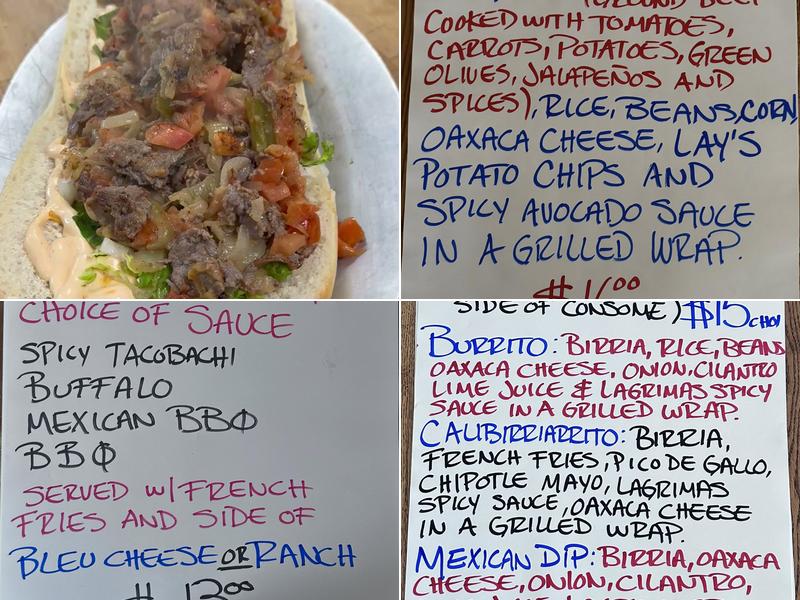 (GROUND BEEF
COOKED WITH TOMATOES,
CARROTS, POTATOES, GREEN
OLIVES, JALAPEÑOS AND
SPICES), RICE, BEANS, CORN,
OAXACA CHEESE, LAY'S
POTATO CHIPS AND
SPICY AVOCADO SAUCE
IN A GRILLED WRAP.
$16.00
CHOICE OF SAUCE
SPICY TACOBACHI
BUFFALO
MEXICAN BBQ
BBQ
SERVED W/FRENCH
FRIES AND SIDE OF
BLEU CHEESE OR RANCH
SIDE OF CONSOME) $15
BURRITO: BIRRIA, RICE, BEANS
OAXACA CHEESE, ONION, CILANTRO
LIME JUICE & LAGRIMAS SPICY
SAUCE IN A GRILLED WRAP.
CALIBIRRIARRITO: BIRRIA,
FRENCH FRIES, PICO DE GALLO,
CHIPOTLE MAYO, LAGRIMAS
SPICY SAUCE, OAXACA CHEESE
IN A GRILLED WRAP.
MEXICAN DIP: BIRRIA, OAXACA
CHEESE, ONION, CILANTRO,